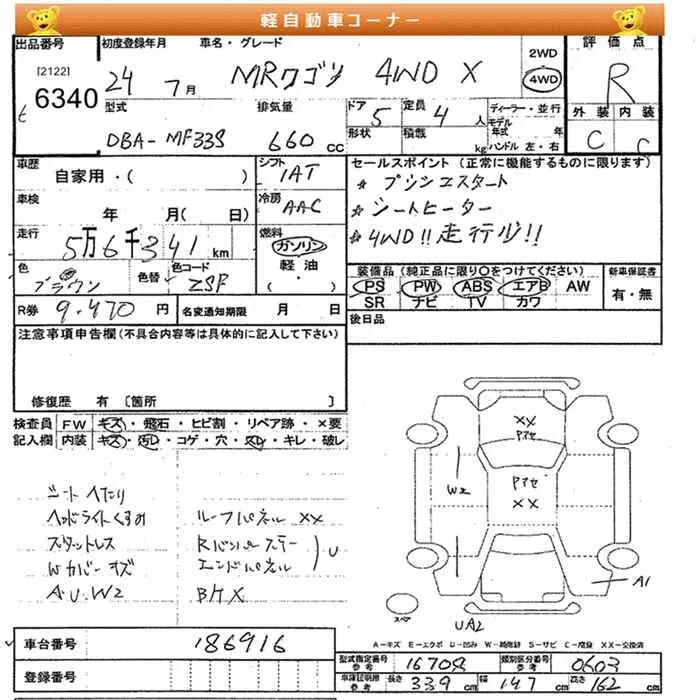 軽自動車コーナー
出品番号 初度登録年月 車名・グレード 2WD 評価点
[2122] 6340 24年 7月 MRワゴン 4WD X 4WD R
型式 排気量 ドア 定員 ディーラー・並行 外装 内装
DBA-MF33S 660 cc 5 4人 モデル年式 年 C C
形状 積載 kg ハンドル 左・右
車歴 自家用・( ) シフト IAT セールスポイント (正常に機能するものに限ります)
車検 年 月( 日) 冷房 AAC ☆ プッシュスタート
☆ シートヒーター
走行 5万6千341 km 燃料 ガソリン ☆ 4WD!!走行少!!
色 ブラウン 色替 色コード ZSF 軽油・( )
装備品 (純正品に限り○をつけてください) 新車保証書
PS PW ABS エアB AW 有・無
SR ナビ TV カワ
R券 9,470 円 名変通知期限 月 日 後日品
注意事項申告欄(不具合内容等は具体的に記入して下さい)
修復歴 有 〔箇所 〕
検査員 FW キズ・飛石・ヒビ割・リペア跡・×要
記入欄 内装 キズ・汚レ・コゲ・穴・スレ・キレ・破レ
シートへたり
ヘッドライトくすみ ルーフパネル XX
スタットレス Rバンパーステー
Wカバーキズ エンドパネル U
A.U.W2 BケX
XX
Pアセ
Pアセ
XX
W2
A1
スペア
UA2
A-キズ E-エクボ U-凹み W-補修跡 S-サビ C-腐食 XX-交換済
車台番号 186916 型式指定番号 参考 16708 類別区分番号 参考 0603
登録番号 車庫証明用 参考 長さ 339 cm 幅 147 cm 高さ 162 cm